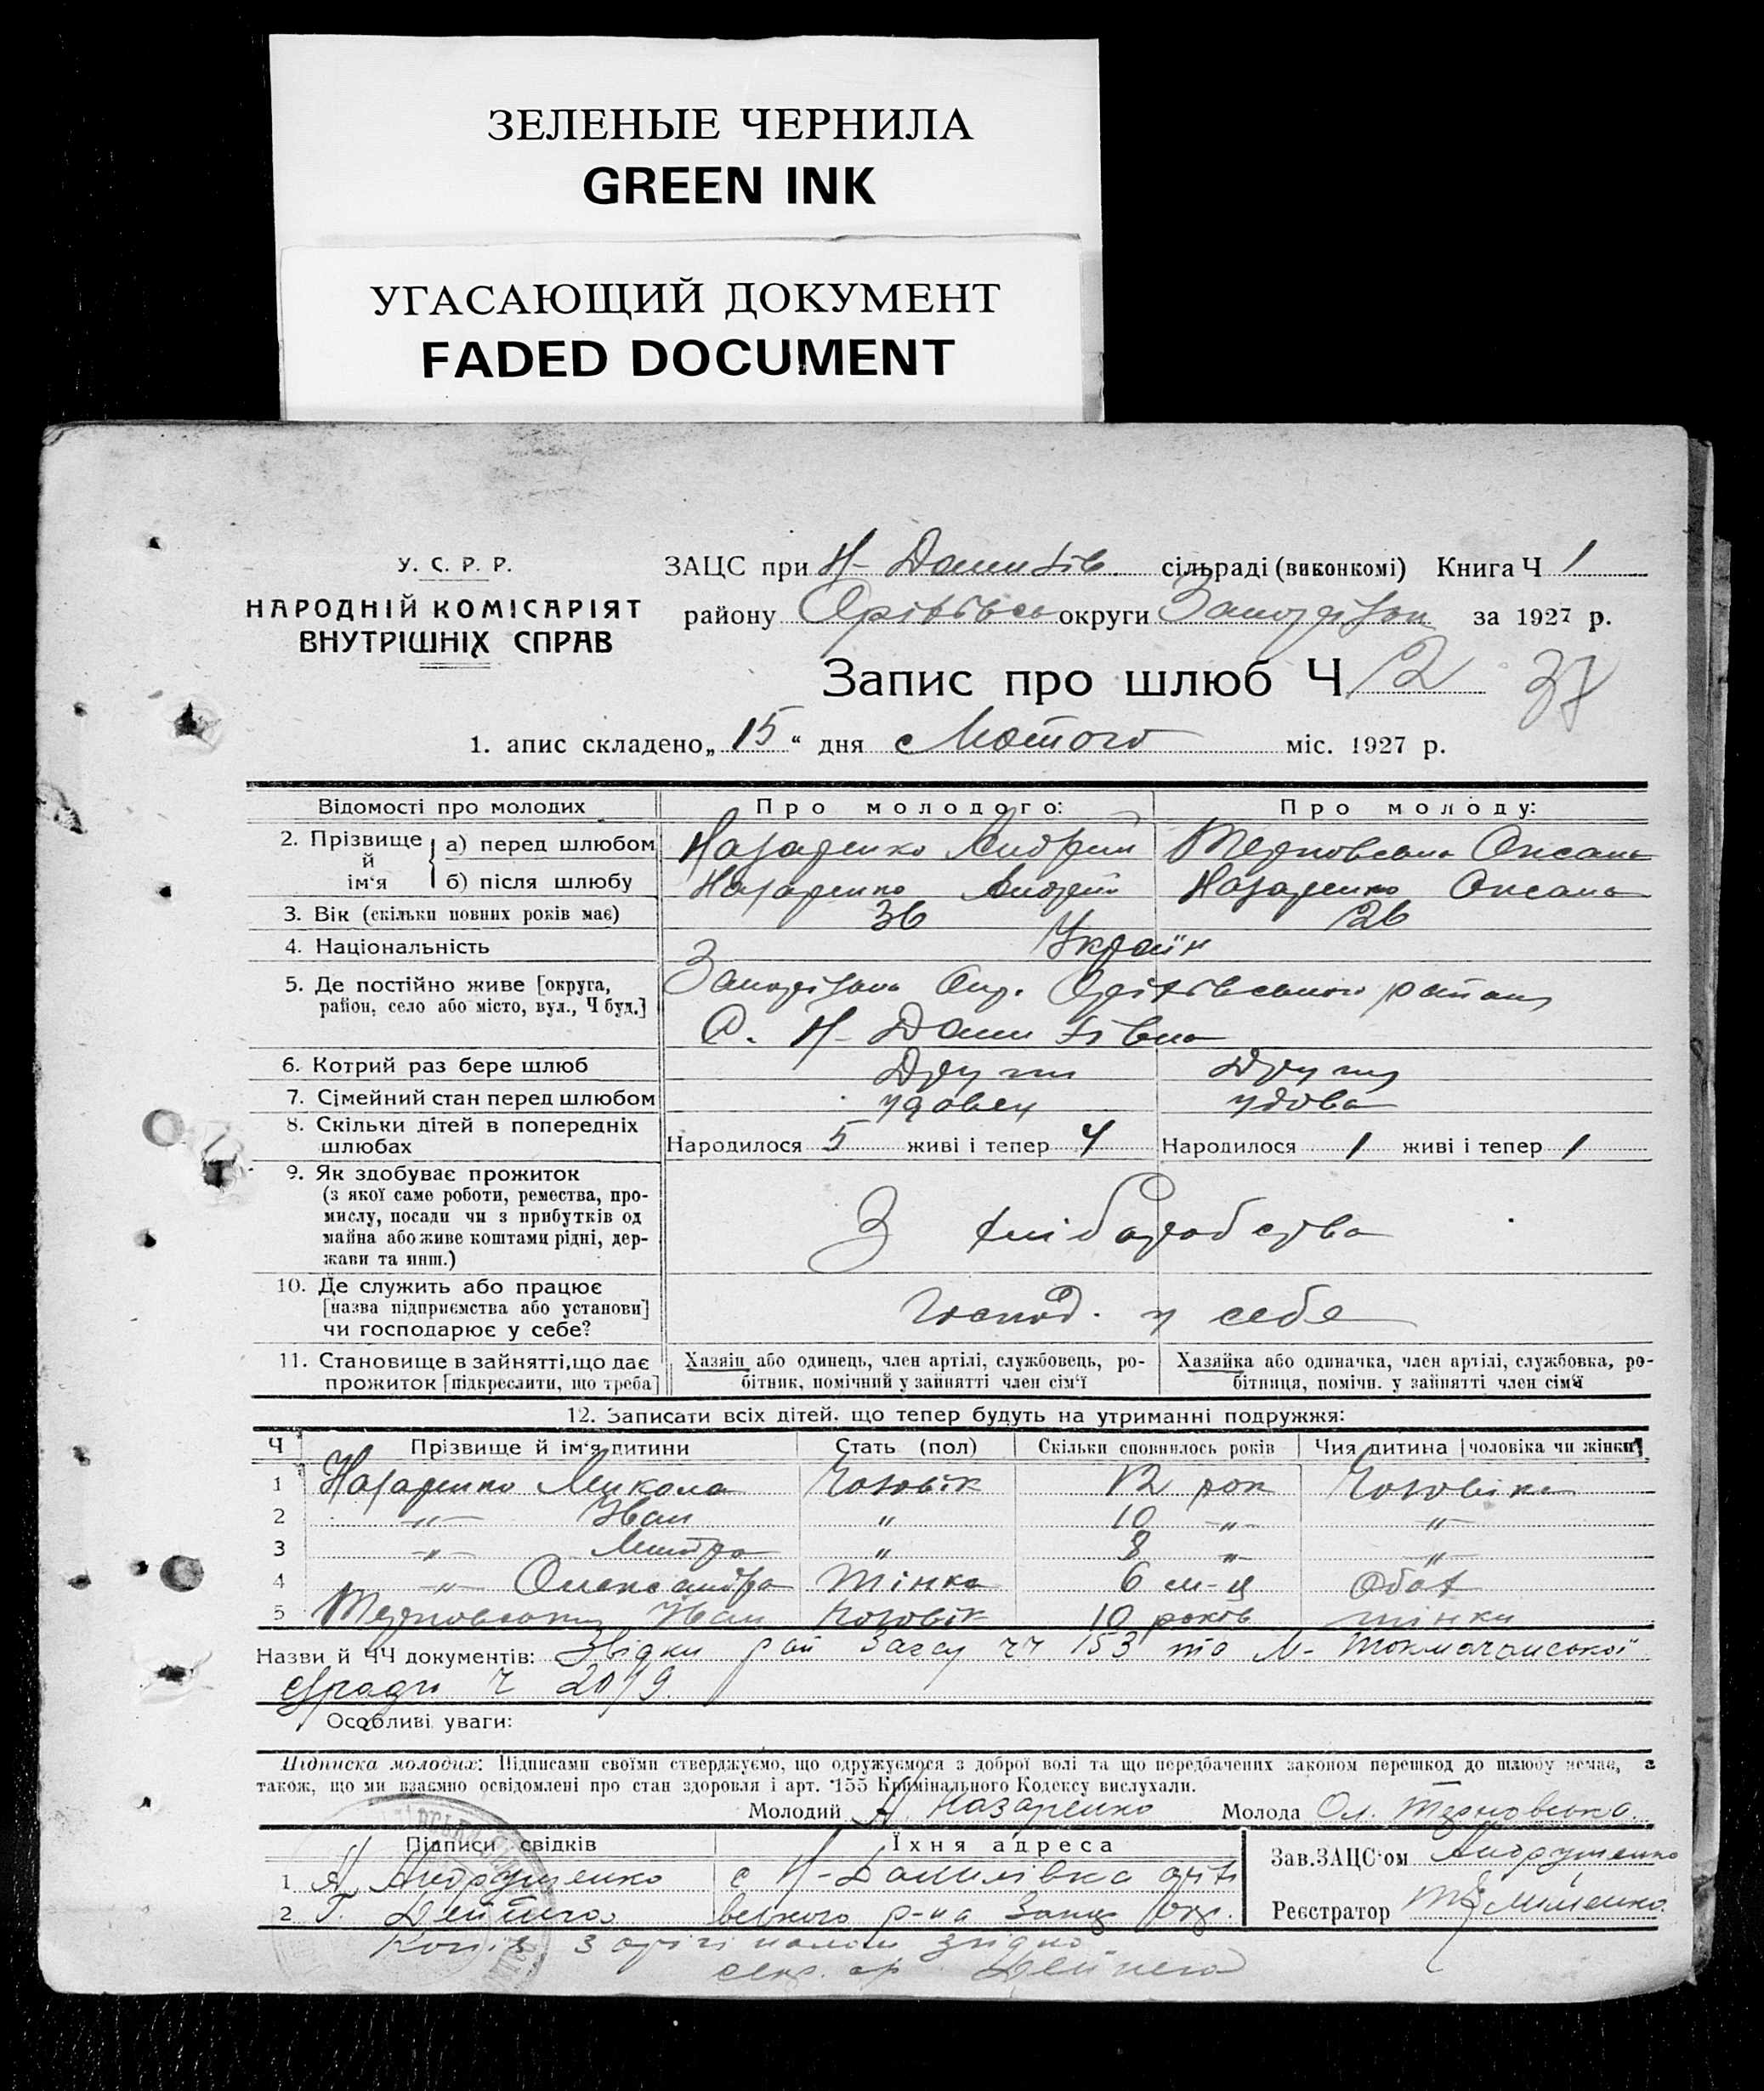 ЗЕЛЕНЫЕ ЧЕРНИЛА
GREEN INK
УГАСАЮЩИЙ ДОКУМЕНТ
FADED DOCUMENT
У. С. Р. Р.
НАРОДНІЙ КОМІСАРІЯТ
ВНУТРІШНІХ СПРАВ
ЗАЦС при Н-Данилів. сільраді (виконкомі) Книга Ч 1
району Оріхівсь округи Запоріжж за 1927 р.
Запис про шлюб Ч 2 37
1. апис складено „15“ дня Лютого міс. 1927 р.
Відомості про молодих Про молодого: Про молоду:
2. Прізвище й ім'я а) перед шлюбом Назаренко Андрій Терновська Оксана
б) після шлюбу Назаренко Андрій Назаренко Оксана
3. Вік (скільки повних років має) 36 26
4. Національність Україн
5. Де постійно живе [округа, район, село або місто, вул., Ч буд.] Запоріжська Окр. Оріхівського району
С. Н-Данилівка
6. Котрий раз бере шлюб Другий Другий
7. Сімейний стан перед шлюбом удовец удова
8. Скільки дітей в попередніх шлюбах Народилося 5 живі і тепер 4 Народилося 1 живі і тепер 1
9. Як здобуває прожиток
(з якої саме роботи, ремества, про-
мислу, посади чи з прибутків од
майна або живе коштами рідні, дер-
жави та инш.) З хліборобства
10. Де служить або працює
[назва підприємства або установи]
чи господарює у себе? Господ. у себе
11. Становище в зайнятті, що дає
прожиток [підкреслити, що треба]
Хазяїн або одинець, член артілі, службовець, ро-
бітник, помічний у зайнятті член сім'ї
Хазяйка або одиначка, член артілі, службовка, ро-
бітниця, помічн. у зайнятті член сім'ї
12. Записати всіх дітей, що тепер будуть на утриманні подружжя:
Ч Прізвище й ім'я дитини Стать (пол) Скільки сповнилось років Чия дитина [чоловіка чи жінки]
1 Назаренко Микола Чоловік 12 рок Чоловіка
2 -„- Іван „ 10 -„- -„-
3 -„- „ 8 „ -„-
4 -„- Олександра Жінка 6 м-ц Обох
5 Терновський Іван Чоловік 10 років жінки
Назви й ЧЧ документів: Звідки рай Загсу чч 153 та М-Токмачанської
с/ради Ч 2019.
Особливі уваги:
Підписка молодих: Підписами своїми стверджуємо, що одружуємося з доброї волі та що передбачених законом перешкод до шлюбу немає, а
також, що ми взаємно освідомлені про стан здоровля і арт. 155 Кримінального Кодексу вислухали.
Молодий А Назаренко Молода Ол. Терновська
Підписи свідків Їхня адреса Зав.ЗАЦС'ом Андрущенко
1 А Андрущенко с Н-Данилівка оріх
2 Г. Дейнега вського р-на Запор Окр. Реєстратор
Копія з орігіналом згідно
секр. с/р Дейнега